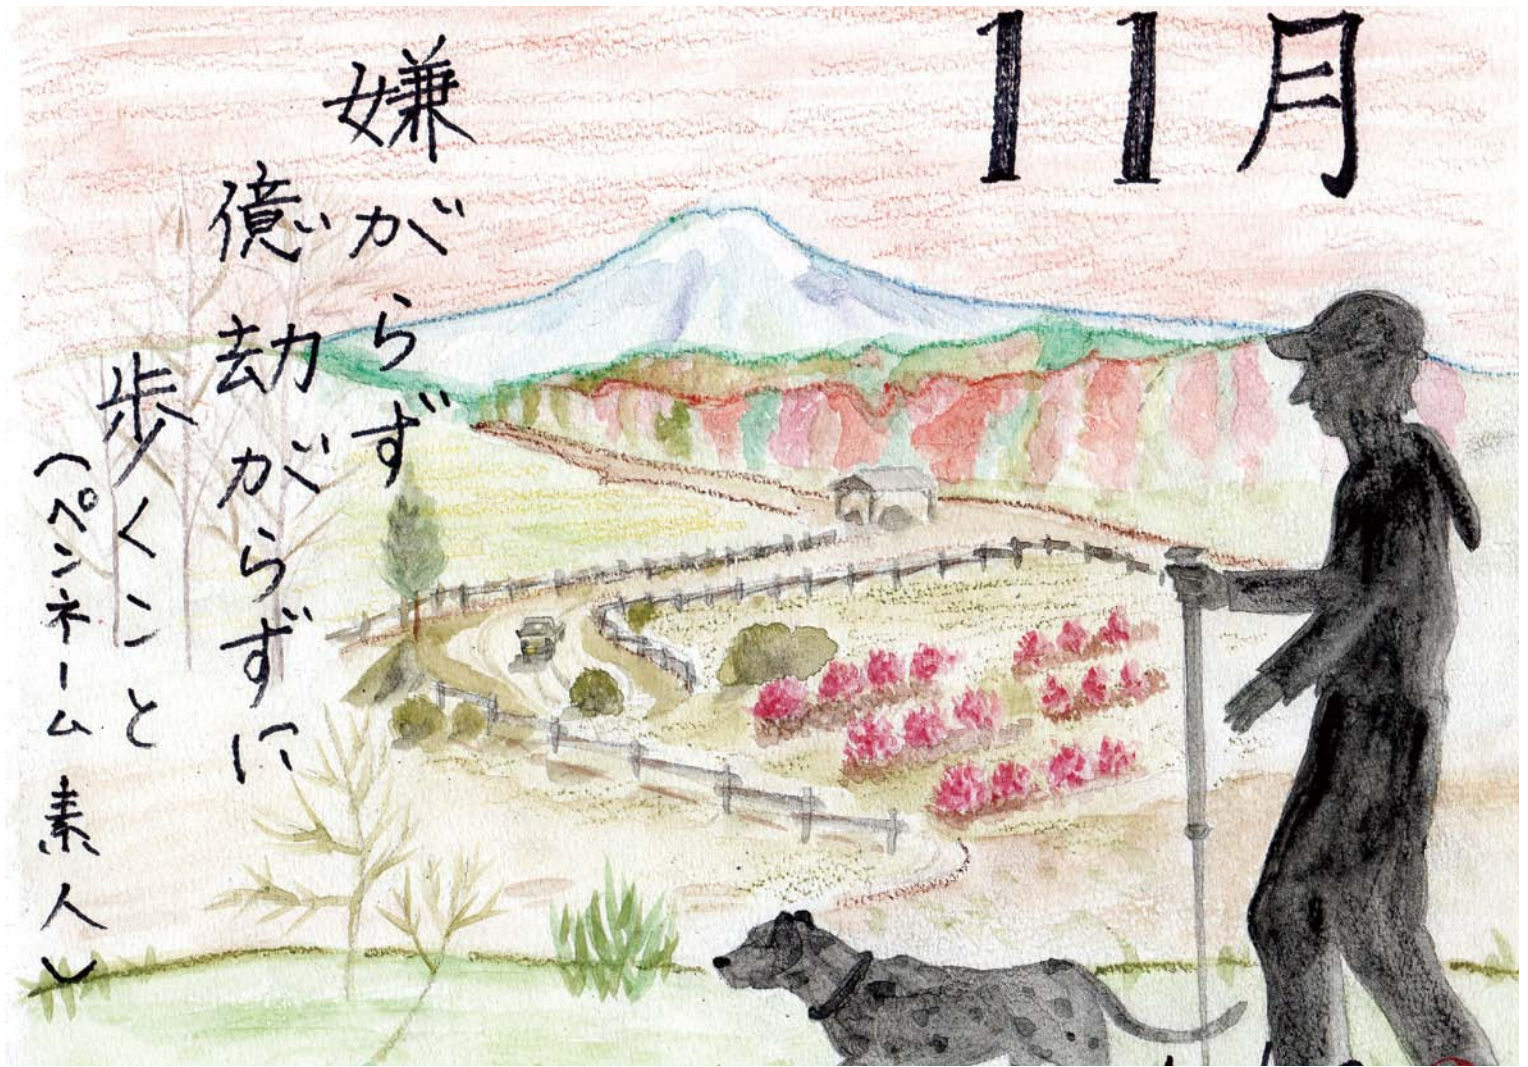 11月
嫌がらず
億劫がらずに
歩くンと
(ペンネーム 素人)